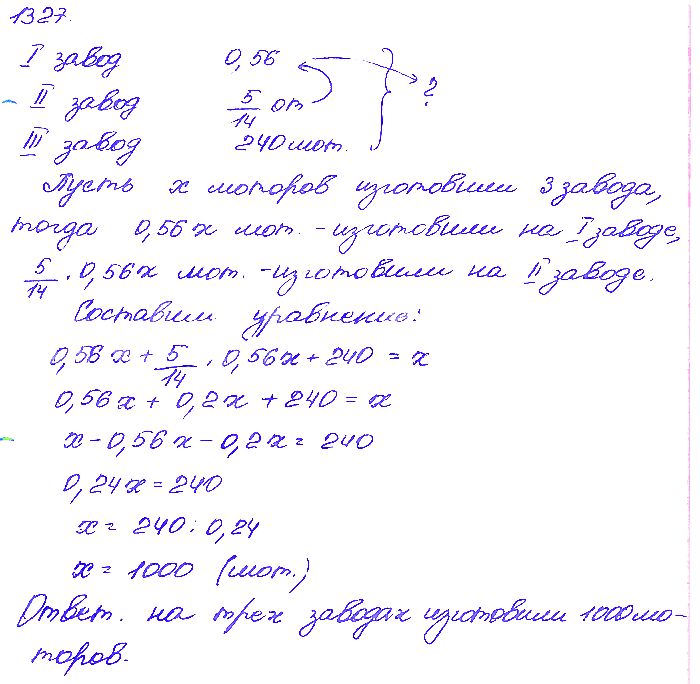 1327.
I завод 0,56
II завод 5/14 от ?
III завод 240 мот.
Пусть x моторов изготовили 3 завода,
тогда 0,56x мот. - изготовили на I заводе,
5/14 · 0,56x мот. - изготовили на II заводе.
Составим уравнение:
0,56x + 5/14 · 0,56x + 240 = x
0,56x + 0,2x + 240 = x
x - 0,56x - 0,2x = 240
0,24x = 240
x = 240 : 0,24
x = 1000 (мот.)
Ответ. на трех заводах изготовили 1000 мо-
торов.